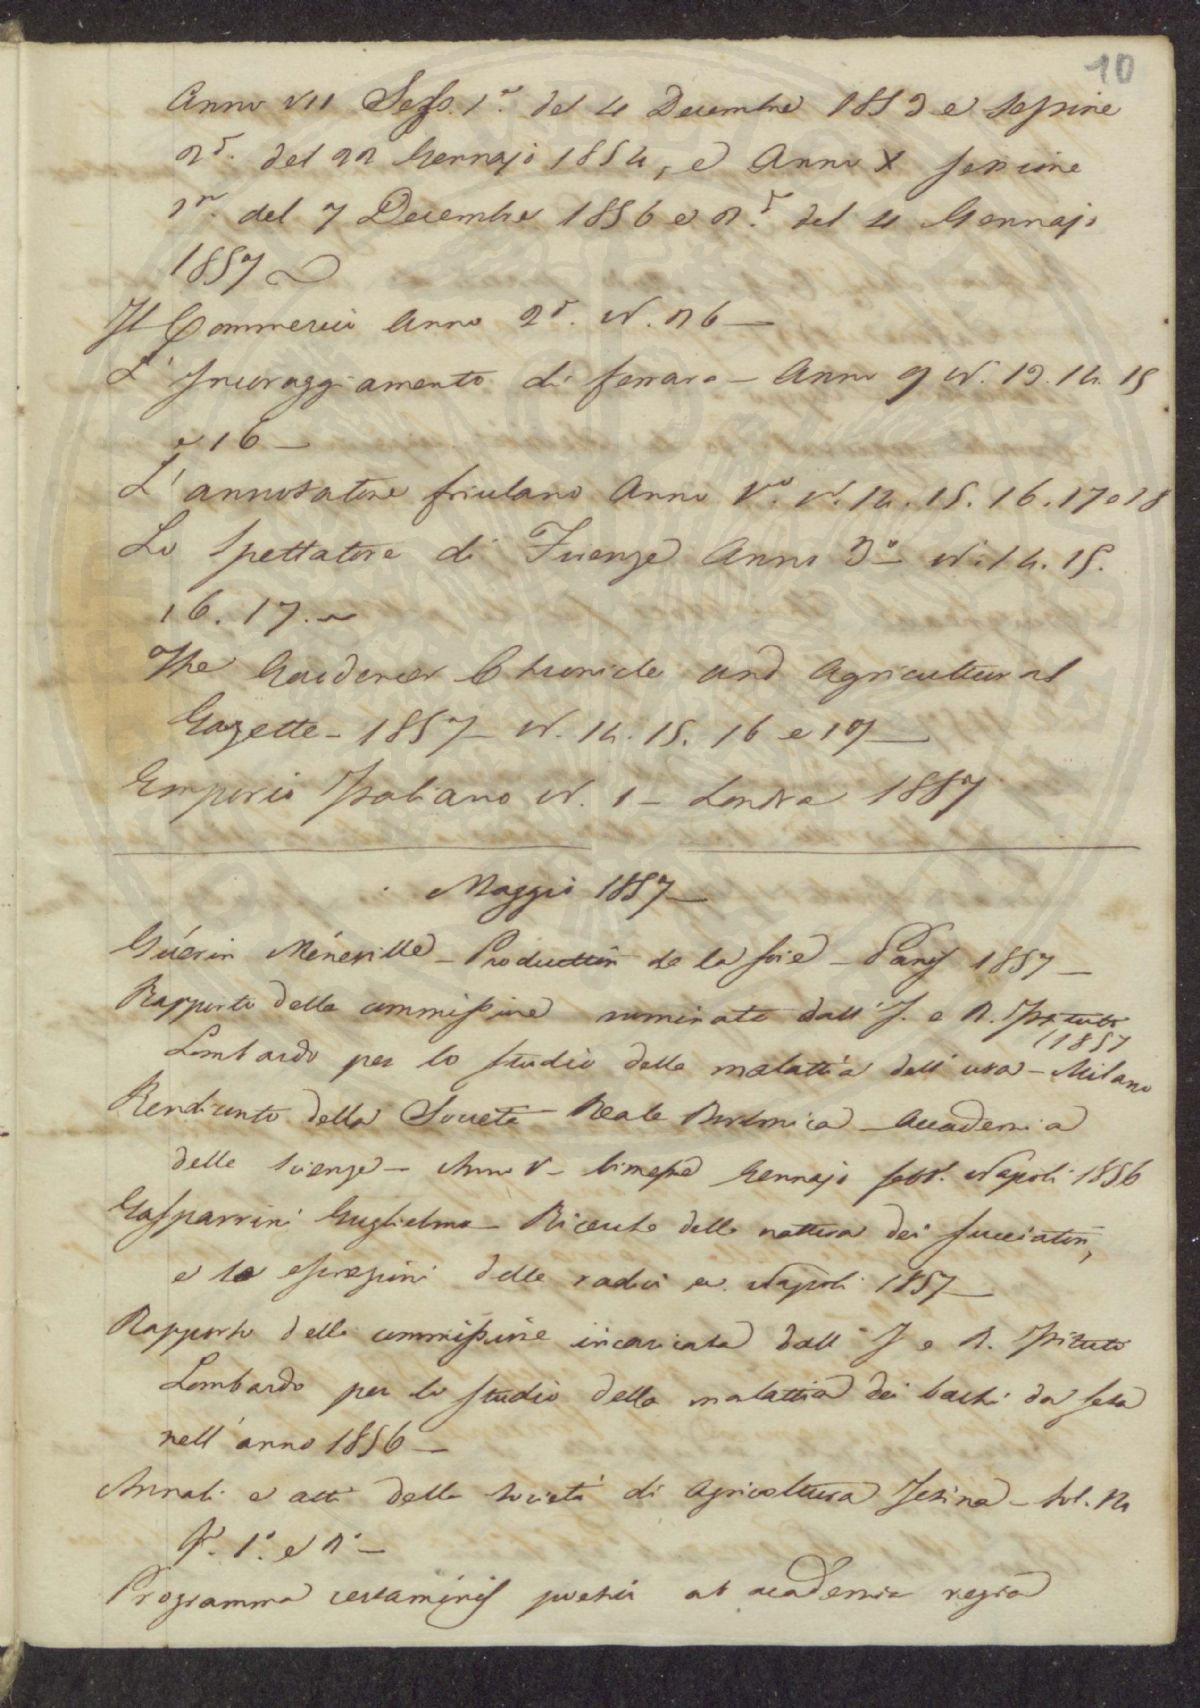 10
Anno VII Sess. 1.a del 4 Decembre 1853 e sessione
2.a del 22 Gennajo 1854, e Anno X sessione
1.a del 7 Decembre 1856 e 2.a del 4 Gennajo
1857
Il Commercio Anno 2.o N. 26 —
L'Incoraggiamento di Ferrara — Anno 9 N. 13. 14. 15
e 16 —
L'annotatore friulano Anno V.o N. 14. 15. 16. 17 e 18
Lo Spettatore di Firenze Anno 3.o N. 14. 15.
16. 17. —
The Gardener Chronicle and Agricultural
Gazette — 1857 — N. 14. 15. 16 e 17 —
Emporio Italiano N. 1 — Londra 1857
Maggio 1857 —
Guérin Méneville — Production de la soie — Paris 1857 —
Rapporto della commissione nominata dall'I. e R. Istituto
Lombardo per lo studio della malattia dell'uva — Milano
(1857
Rendiconto della Società Reale Borbonica — Accademia
delle Scienze — Anno V — bimestre Gennajo febb. Napoli 1856
Gasparrini Guglielmo — Ricerche della natura dei succiatori,
e la escrezioni delle radici ec. Napoli 1857 —
Rapporto della commissione incaricata dall'I e R. Istituto
Lombardo per lo studio della malattia dei bachi da seta
nell'anno 1856 —
Annali e atti della Società di Agricoltura Jesina — Vol. 2.
F. 1.o e 2.o —
Programma certaminis poetici ab academia regia